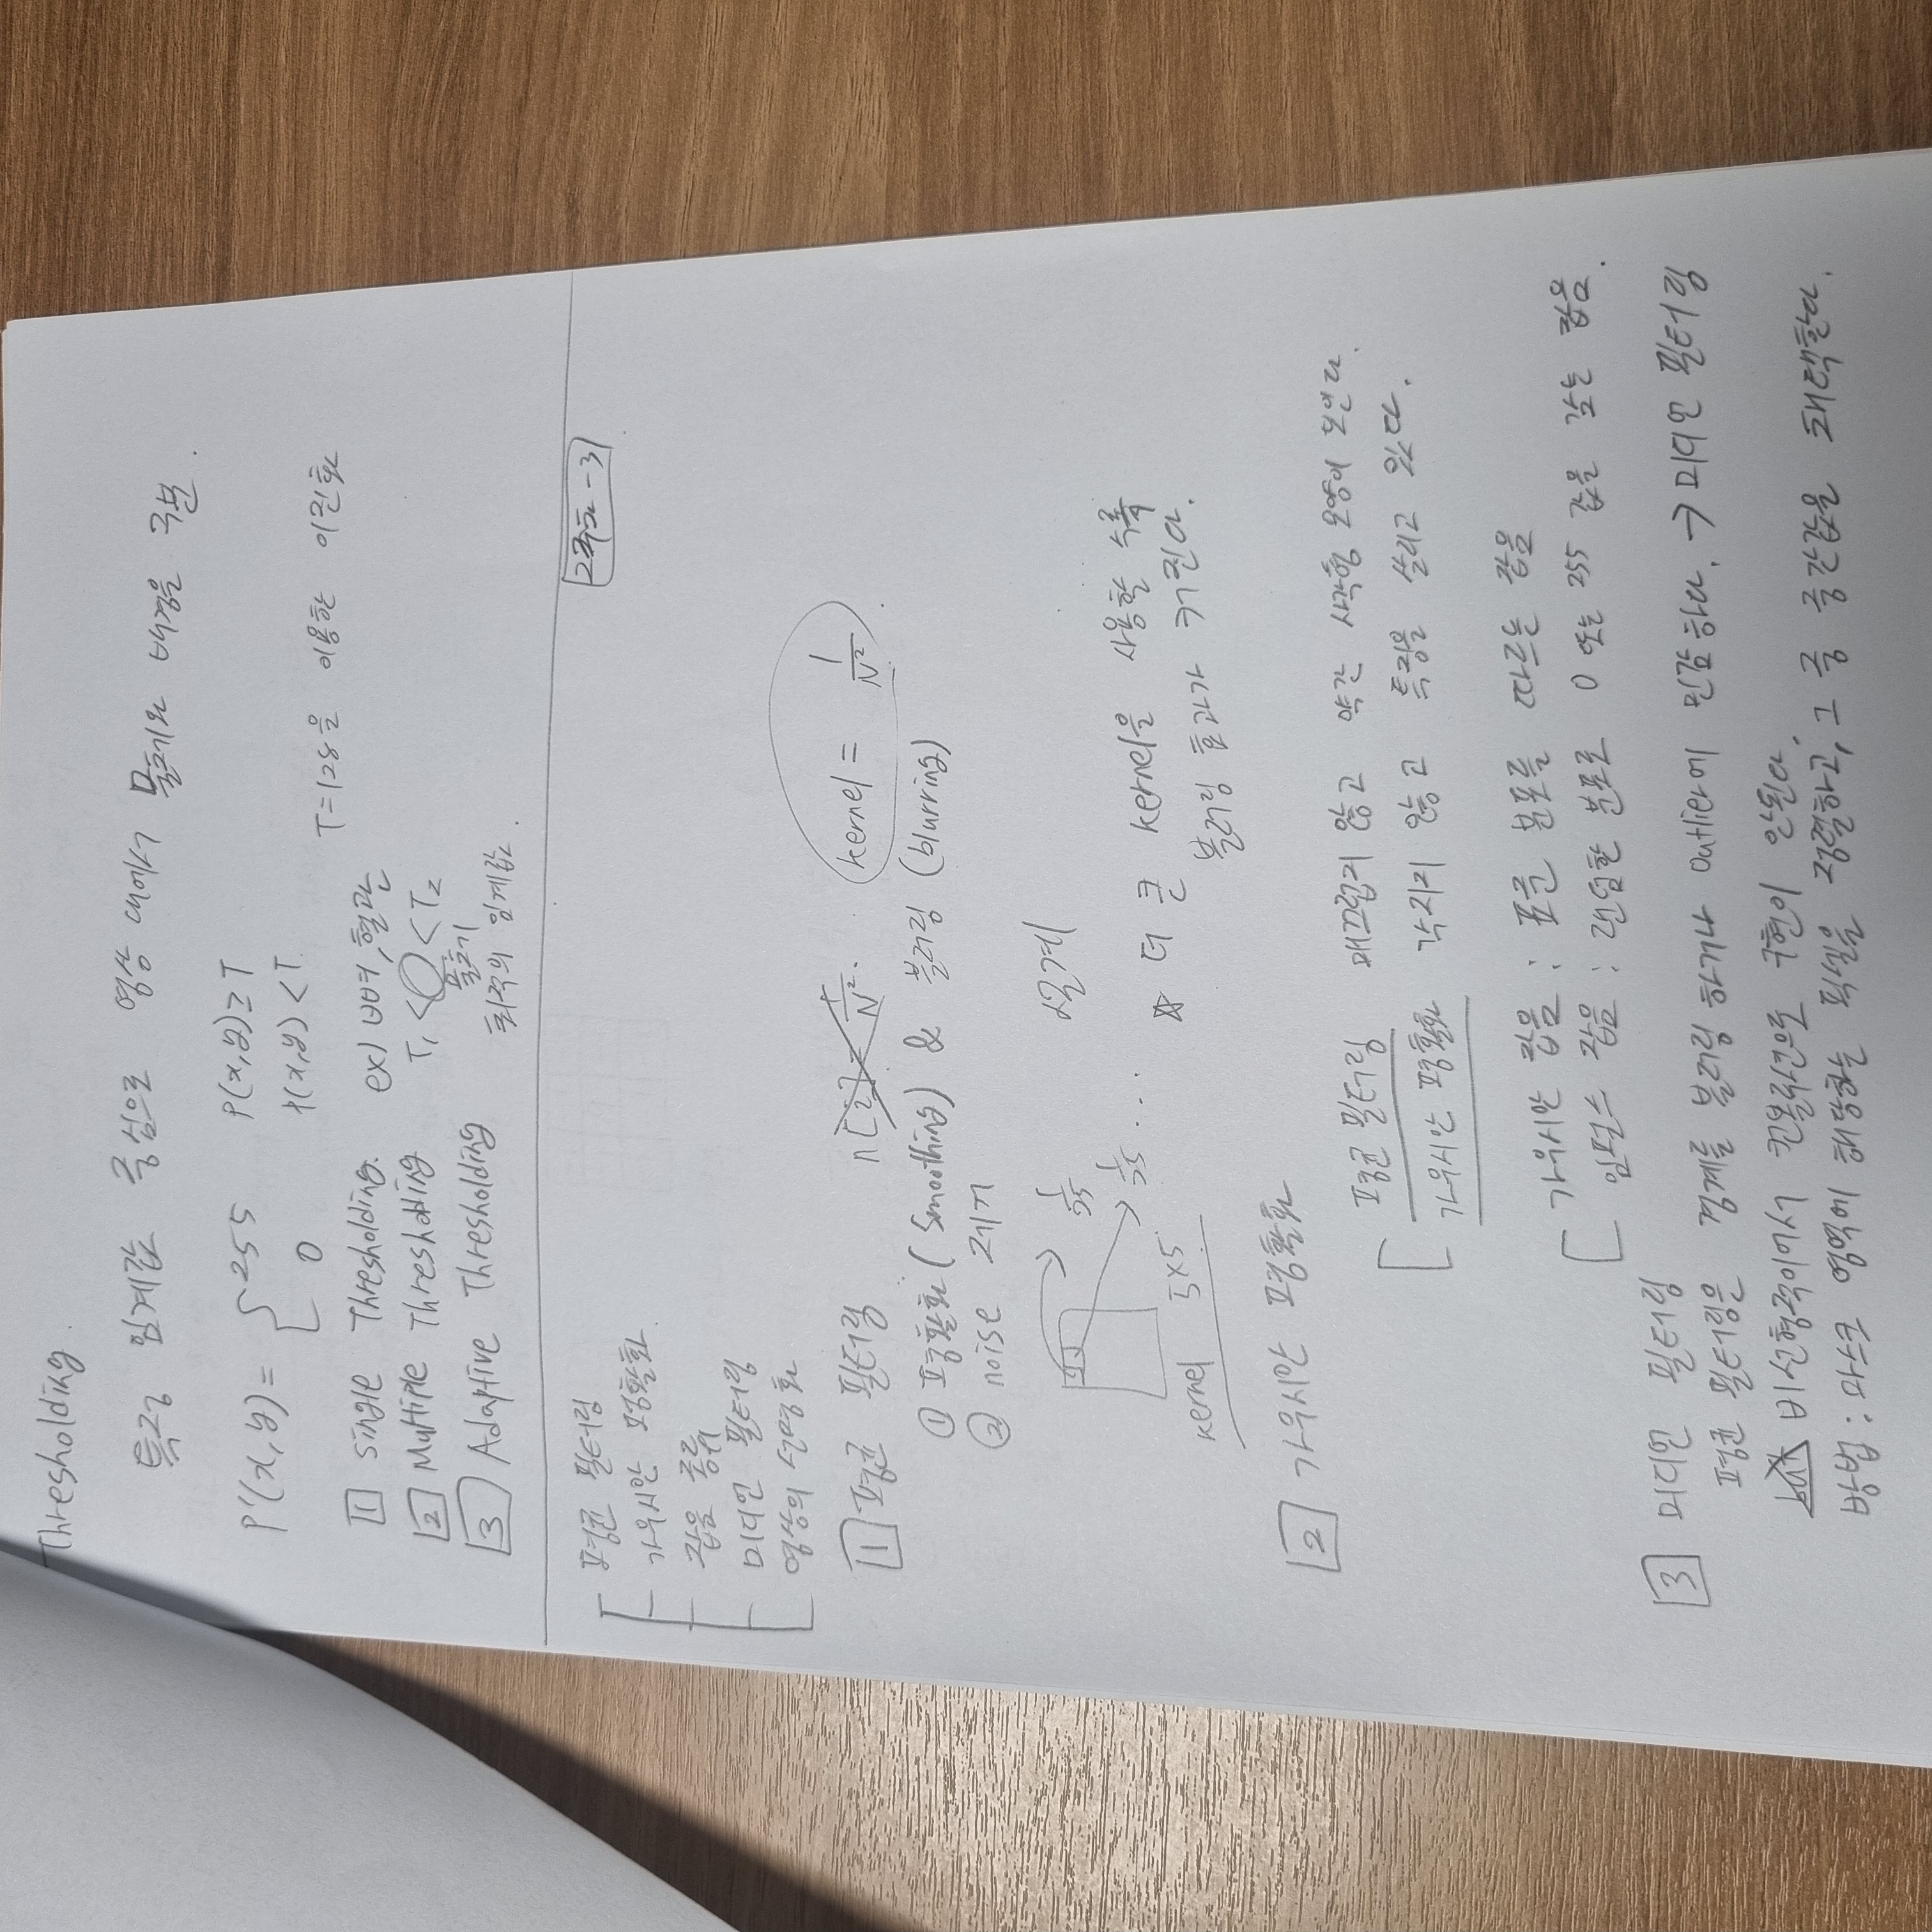 Thresholding.
특정 임계값 중심으로 영상 내에서 물체와 배경을 구분.
P'(x,y)= { 255 P(x,y)≥T
0 P(x,y)<T
T=128을 이용한 이진화
1 Single Thresholding. ex) 뼈, 혈관
2 Multiple Thresholding T₁ < ○ < T₂
물체
3 Adaptive Thresholding 최적의 임계값.
2주차-3
평균 필터링
가우시안 평활화
잡음 종류
미디언 필터링
영상의 선명화
1 평균 필터링 kernel = 1/N²
① 평활화 (Smoothing) & 블러링 (blurring)
② noise 제거
1/25 설계
1/25 ...
kernel 5x5
☆ 더 큰 kernel을 사용할 수록
블러링 효과가 커진다.
2 가우시안 평활화
평균 필터링 매끄럽지 않고 약간 사각형 모양이 보인다.
가우시안 평활화 각지지 않고 특징을 살리고 있다.
가우시안 잡음 : 표준 분포를 따르는 잡음
임펄스 잡음 : 랜덤한 분포로 0 또는 255 값을 갖는 잡음.
3 미디언 필터링
평균 필터링은 경계를 블러링 하거나 outlier에 민감하다. → 미디언 필터링
but 비선형적이어서 컨볼루션으로 구현이 안된다.
방법 : 마스크 영역에 해당하는 픽셀을 정렬하고, 그 중 중간값을 채택한다.